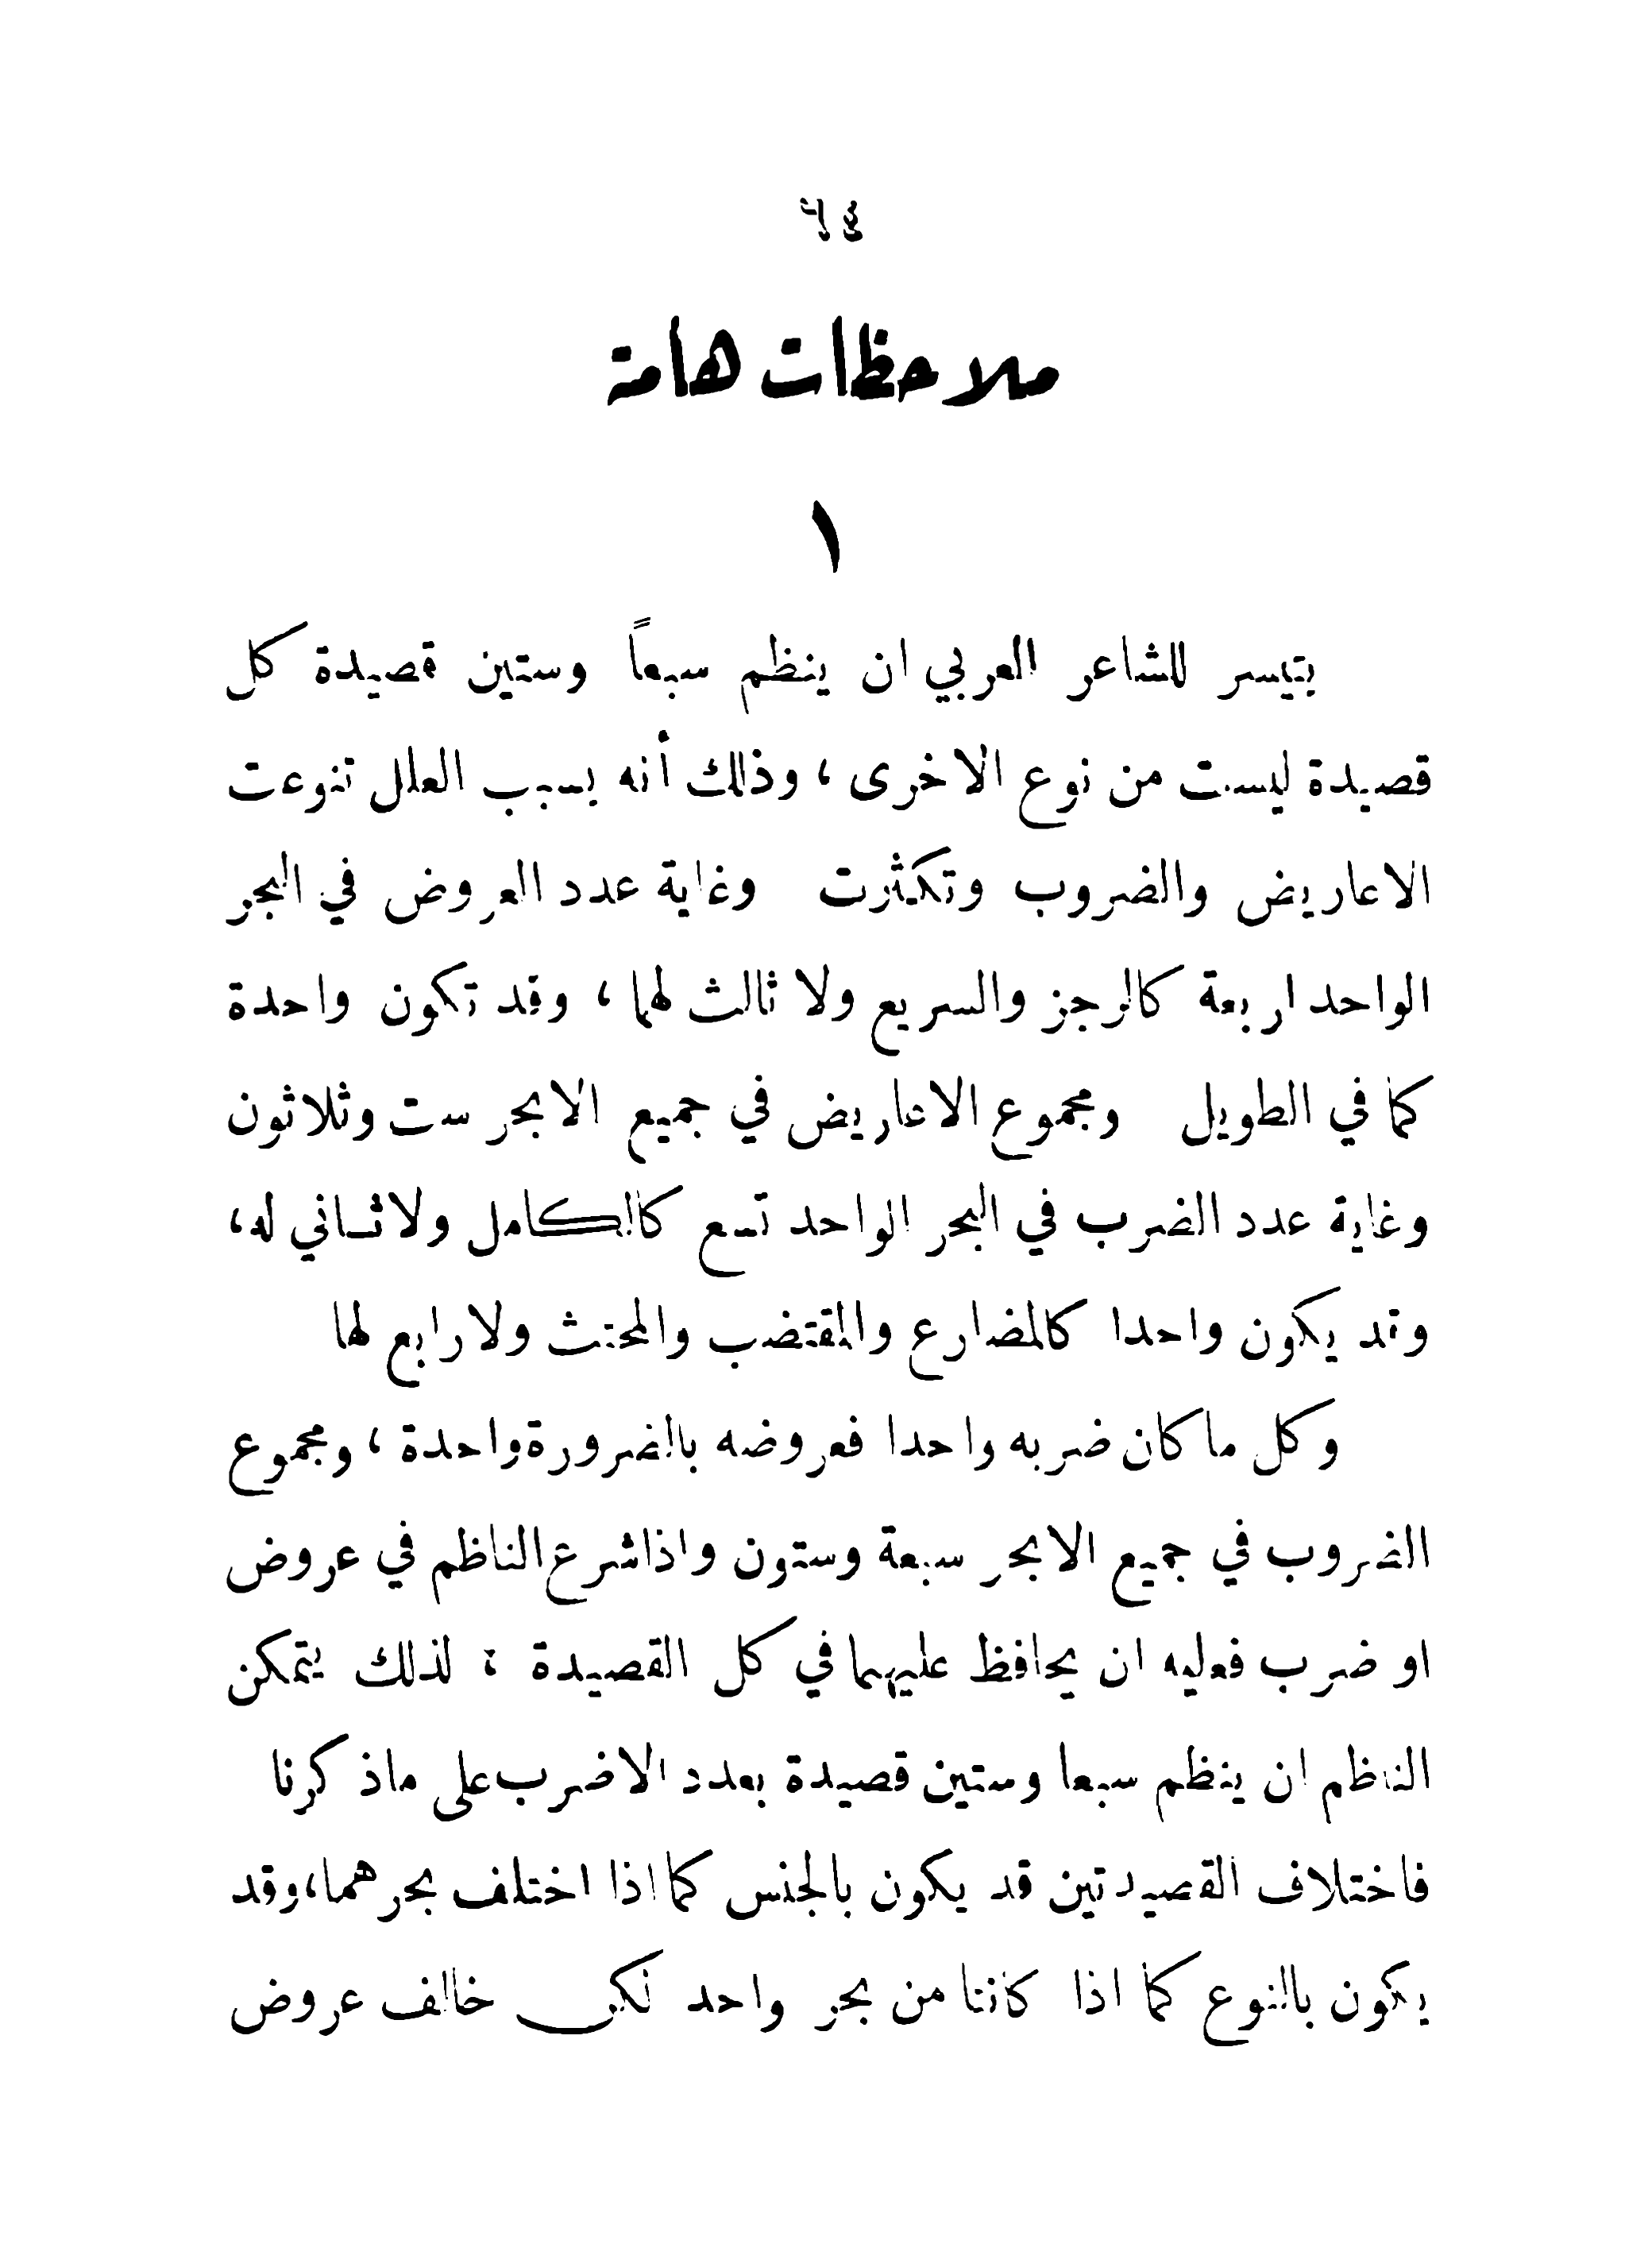 ٦٤
ملاحظات هامة
١
يتيسر للشاعر العربي ان ينظم سبعاً وستين قصيدة كل
قصيدة ليست من نوع الاخرى ، وذلك أنه بسبب العلل تنوعت
الاعاريض والضروب وتكثرت وغاية عدد العروض في البحر
الواحد اربعة كالرجز والسريع ولا ثالث لهما ، وقد تكون واحدة
كما في الطويل ومجموع الاعاريض في جميع الابحر ست وثلاثون
وغاية عدد الضرب في البحر الواحد تسع كالكامل ولا ثاني له،
وقد يكون واحدا كالمضارع والمقتضب والمجتث ولا رابع لها
وكل ما كان ضربه واحدا فعروضه بالضرورة واحدة ، ومجموع
الضروب في جميع الابحر سبعة وستون واذا شرع الناظم في عروض
او ضرب فعليه ان يحافظ عليهما في كل القصيدة ؛ لذلك يتمكن
الناظم ان ينظم سبعا وستين قصيدة بعدد الاضرب على ماذكرنا
فاختلاف القصيدتين قد يكون بالجنس كما اذا اختلف بحرهما، وقد
يكون بالنوع كما اذا كانتا من بحر واحد لكن خالف عروض